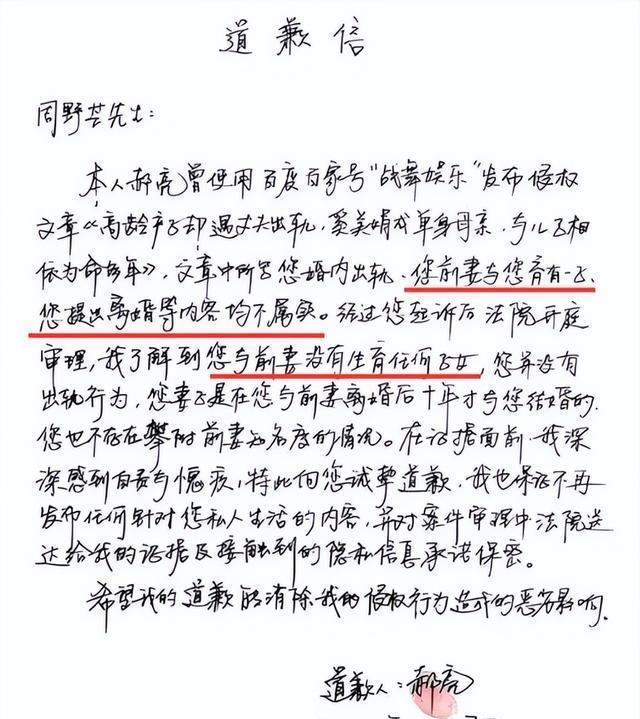 道歉信
周野芒先生:
本人郝亮曾使用百度百家号“战舞娱乐”发布侵权
文章《高龄产子却遇丈夫出轨,奚美娟成单身母亲,与儿子相
依为命多年》,文章中所写您婚内出轨、您前妻与您育有一子、
您提出离婚等内容均不属实。经过您起诉后法院开庭
审理,我了解到您与前妻没有生育任何子女,您并没有
出轨行为,您妻子是在您与前妻离婚后十年才与您结婚的.
您也不存在攀附前妻知名度的情况。在证据面前,我深
深感到自责与愧疚,特此向您诚挚道歉,我也保证不再
发布任何针对您私人生活的内容,并对案件审理中法院送
达给我的证据及接触到的隐私信息承诺保密。
希望我的道歉能消除我的侵权行为造成的恶劣影响.
道歉人:郝亮